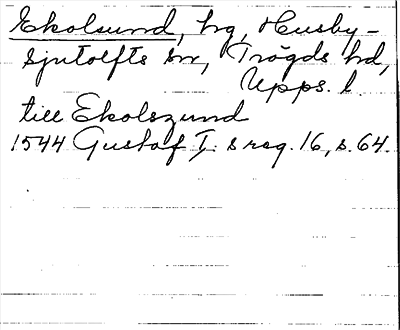 Ekolsund, hg, Husby-
Sjutolfts sn, Trögds hd,
Upps. l.
till Ekolszund
1544 Gustaf I:s reg. 16, s. 64.